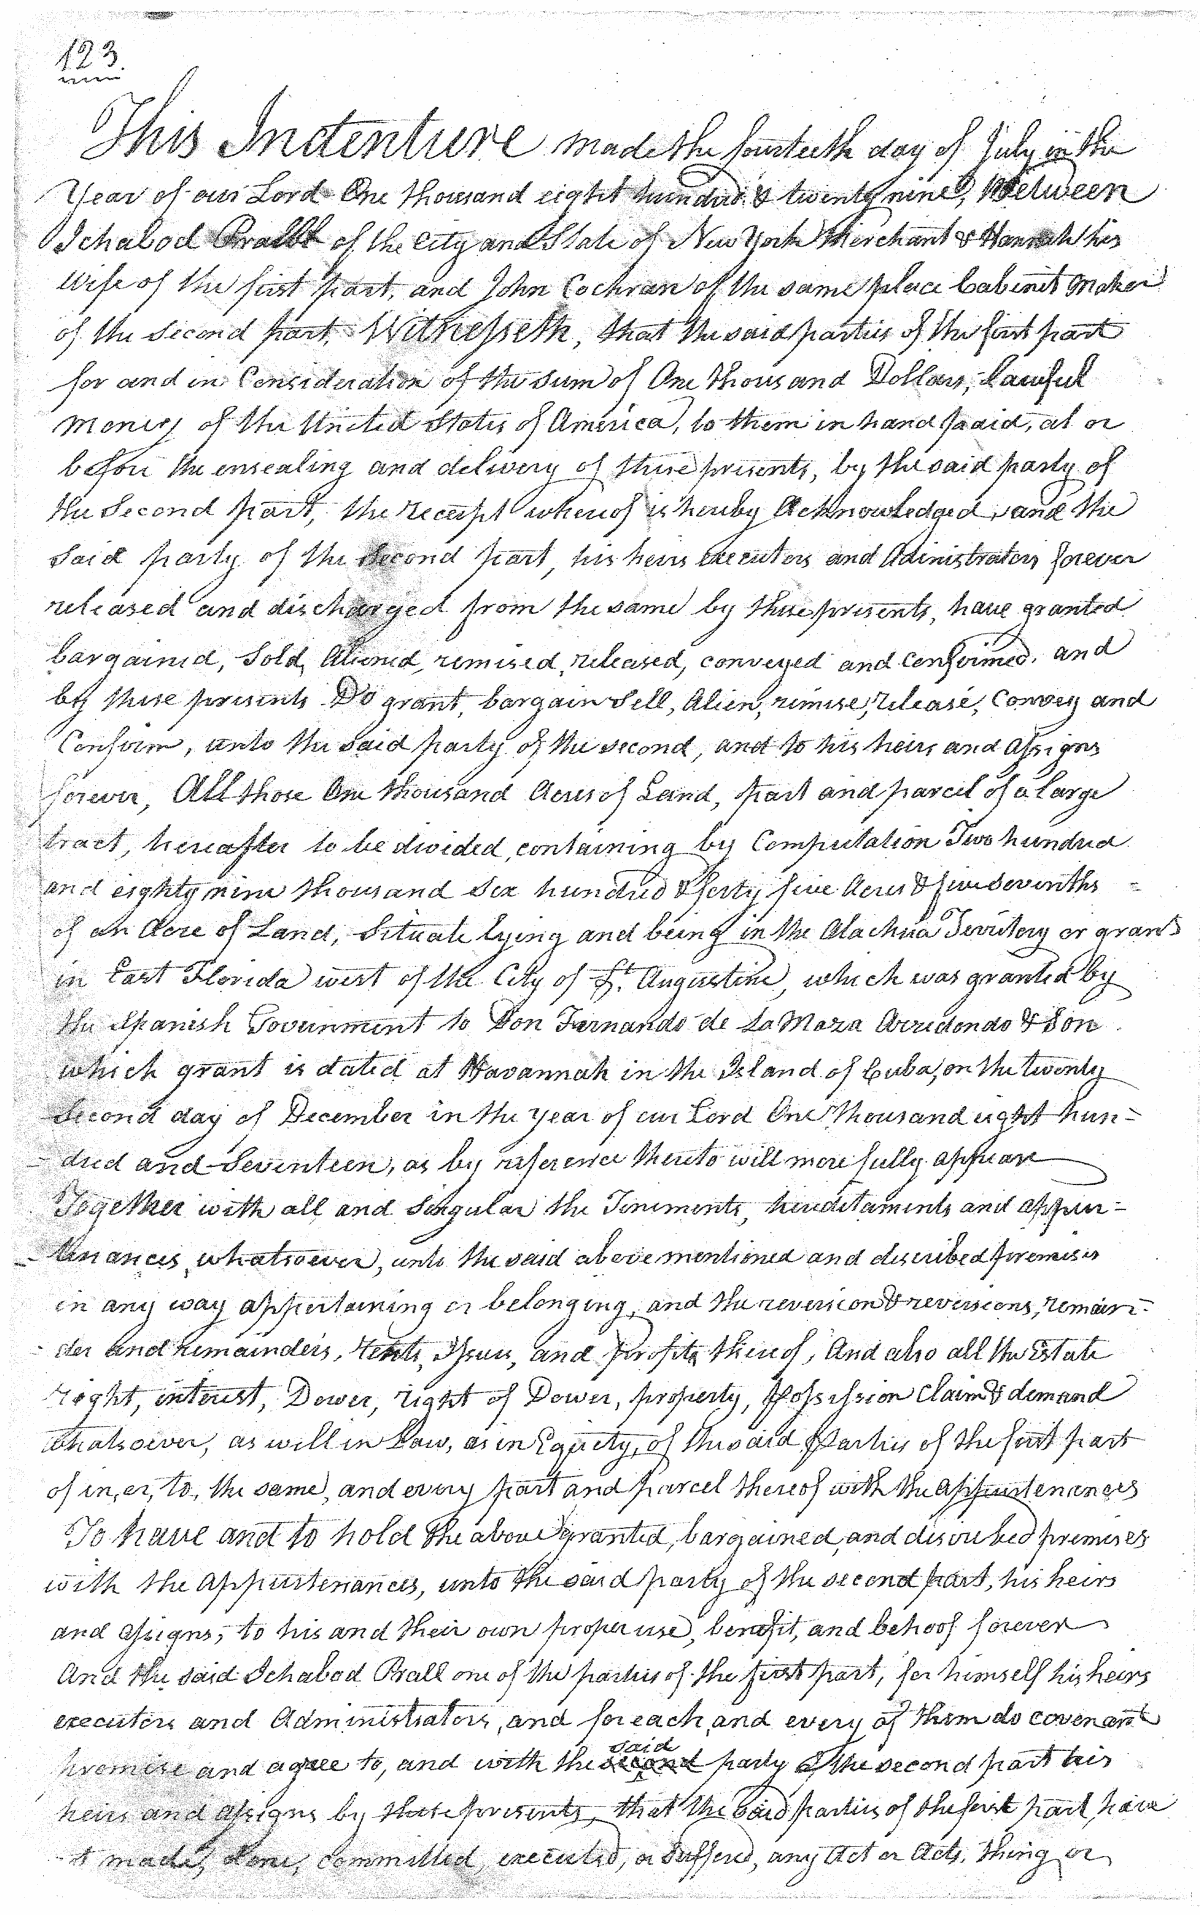 123.
This Indenture made the fourteeth day of July in the
Year of our Lord One thousand eight hundred & twenty nine, Between
Ichabod Prall of the City and State of New York Merchant & Hannah his
Wife of the first part, and John Cochran of the same place Cabinet Maker
of the second part, Witnesseth, that the said parties of the first part
for and in Consideration of the sum of One thousand Dollars, lawful
money of the United States of America, to them in hand paid, at or
before the ensealing and delivery of these presents, by the said party of
the Second part, the receipt whereof is hereby Acknowledged, and the
said party of the second part, his heirs executors and Adinistrators forever
released and discharged from the same by these presents, have granted
bargained, Sold, Aliened, remised, released, conveyed and confirmed, and
by these presents Do grant, bargain Sell, Alien, remise, release, Convey and
Confirm, unto the said party of the second, and to his heirs and assigns
forever, All those One thousand Acres of Land, part and parcel of a large
tract, hereafter to be divided, containing by Computation Two hundred
and eighty nine thousand Six hundred & forty five Acres & five sevenths =
of an Acre of Land, Situate lying and being in the Alachua Territory or grant
in East Florida west of the City of St. Augustine, which was granted by
the Spanish Government to Don Fernando de La Maza Arredondo & Son
which grant is dated at Havannah in the Island of Cuba, on the twenty
Second day of December in the Year of our Lord One thousand eight hun=
dred and Seventeen, as by reference thereto will more fully appear
Together with all and Singular the Tenements, hereditaments and appur=
tenances, whatsoever, unto the said above mentioned and described premises
in any way appertaining or belonging, and the reversion & reversions, remain=
der and remainders, Rents, Issues, and profits thereof, And also all the Estate
right, interest, Dower, right of Dower, property, possession Claim & demand
whatsoever, as well in Law, as in Equity, of the said parties of the first part
of in, or, to, the same, and every part and parcel thereof with the appurtenances
To have and to hold the above granted, bargained, and discribed premises
with the appurtenances, unto the said party of the second part, his heirs
and assigns, to his and their own proper use, benefit, and behoof forever
And the said Ichabod Prall one of the parties of the first part, for himself his heirs
executors and Administrators, and for each, and every of them do covenant
said
promise and agree to, and with the second party of the second part his
heirs and assigns by these presents, that the said parties of the first part, have
made, done, committed, executed, or Suffered, any Act or Acts, thing or